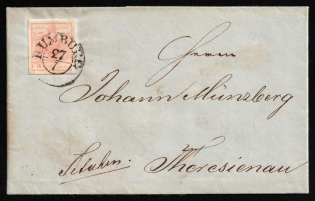 RUMBURG
27
7
Herrn
Johann Münzberg
Tetschen. Theresienau